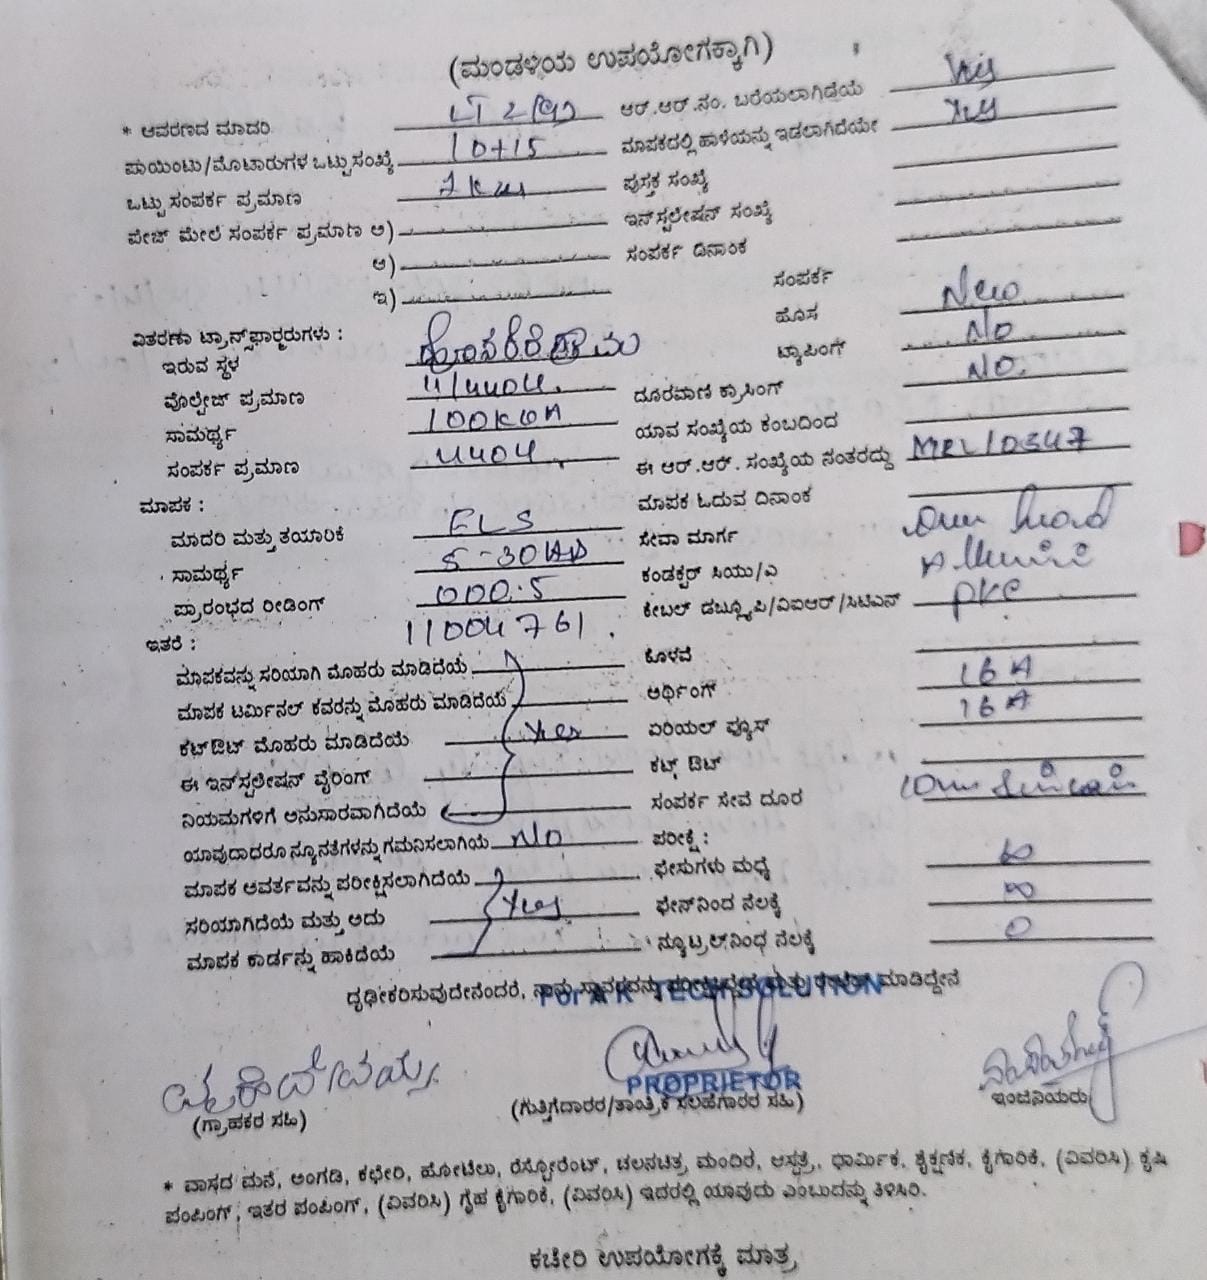 (ಮಂಡಳಿಯ ಉಪಯೋಗಕ್ಕಾಗಿ)
* ಆವರಣದ ಮಾದರಿ LT 2 ಆರ್.ಆರ್.ನಂ. ಬರೆಯಲಾಗಿಡೆಯೆ Yes
ಪಾಯಿಂಟು/ಮೊಟಾರುಗಳ ಒಟ್ಟು ಸಂಖ್ಯೆ 10+15 ಮಾಪಕದಲ್ಲಿ ಹಾಳೆಯನ್ನು ಇಡಲಾಗಿದೆಯೇ Yes
ಒಟ್ಟು ಸಂಪರ್ಕ ಪ್ರಮಾಣ ಪುಸ್ತಕ ಸಂಖ್ಯೆ
ಪೇಜ್ ಮೇಲೆ ಸಂಪರ್ಕ ಪ್ರಮಾಣ ಅ) ಇನ್‌ಸ್ಟಲೇಷನ್ ಸಂಖ್ಯೆ
ಆ) ಸಂಪರ್ಕ ದಿನಾಂಕ
ಇ) ಸಂಪರ್ಕ
ವಿತರಣಾ ಟ್ರಾನ್ಸ್‌ಫಾರ್‍ಮರುಗಳು : ಹೊಸ New
ಇರುವ ಸ್ಥಳ ಟ್ಯಾಪಿಂಗ್ No
ವೊಲ್ಟೇಜ್ ಪ್ರಮಾಣ 11/440V. ದೂರವಾಣಿ ಕ್ರಾಸಿಂಗ್ No.
ಸಾಮರ್ಥ್ಯ 100KVA ಯಾವ ಸಂಖ್ಯೆಯ ಕಂಬದಿಂದ
ಸಂಪರ್ಕ ಪ್ರಮಾಣ 440V. ಈ ಆರ್.ಆರ್. ಸಂಖ್ಯೆಯ ನಂತರದ್ದು
ಮಾಪಕ : ಮಾಪಕ ಓದುವ ದಿನಾಂಕ
ಮಾದರಿ ಮತ್ತು ತಯಾರಿಕೆ ELS ಸೇವಾ ಮಾರ್ಗ
ಸಾಮರ್ಥ್ಯ 5-30 ಕಂಡಕ್ಟರ್ ಸಿಯು/ಎ
ಪ್ರಾರಂಭದ ರೀಡಿಂಗ್ 000.5 ಕೇಬಲ್ ಡಬ್ಲ್ಯೂಪಿ/ವಿಐಆರ್/ಸಿಟಿಎಸ್
ಇತರೆ : 11004761.
ಮಾಪಕವನ್ನು ಸರಿಯಾಗಿ ಮೊಹರು ಮಾಡಿದೆಯೆ ಕೊಳವೆ
ಮಾಪಕ ಟರ್ಮಿನಲ್ ಕವರನ್ನು ಮೊಹರು ಮಾಡಿದೆಯೆ ಅರ್ಥಿಂಗ್ 16 A
ಕಟ್‌ಔಟ್ ಮೊಹರು ಮಾಡಿದೆಯೆ Yes ಏರಿಯಲ್ ಫ್ಯೂಸ್ 16 A
ಈ ಇನ್‌ಸ್ಟಲೇಷನ್ ವೈರಿಂಗ್ ಕಟ್ ಔಟ್
ನಿಯಮಗಳಿಗೆ ಅನುಸಾರವಾಗಿದೆಯೆ ಸಂಪರ್ಕ ಸೇವೆ ದೂರ
ಯಾವುದಾದರೂ ನ್ಯೂನತೆಗಳನ್ನು ಗಮನಿಸಲಾಗಿಯೆ No ಪರೀಕ್ಷೆ :
ಮಾಪಕ ಆವರ್ತವನ್ನು ಪರೀಕ್ಷಿಸಲಾಗಿದೆಯೆ ಫೇಸುಗಳು ಮಧ್ಯೆ ∞
ಸರಿಯಾಗಿದೆಯೆ ಮತ್ತು ಅದು Yes ಫೇಸ್‌ನಿಂದ ನೆಲಕ್ಕೆ ∞
ಮಾಪಕ ಕಾರ್ಡನ್ನು ಹಾಕಿದೆಯೆ ನ್ಯೂಟ್ರಲ್‌ನಿಂಧ ನೆಲಕ್ಕೆ 0
ದೃಢೀಕರಿಸುವುದೇನೆಂದರೆ, ನಾವು ಮಾಡಿದ್ದೇನೆ
For A K TECH SOLUTION
PROPRIETOR
(ಗ್ರಾಹಕರ ಸಹಿ) (ಗುತ್ತಿಗೆದಾರರ/ತಾಂತ್ರಿಕ ಸಲಹೆಗಾರರ ಸಹಿ) ಇಂಜಿನಿಯರು
* ವಾಸದ ಮನೆ, ಅಂಗಡಿ, ಕಛೇರಿ, ಹೋಟೆಲು, ರೆಸ್ಟೋರೆಂಟ್, ಚಲನಚಿತ್ರ ಮಂದಿರ, ಆಸ್ಪತ್ರೆ, ಧಾರ್ಮಿಕ, ಶೈಕ್ಷಣಿಕ, ಕೈಗಾರಿಕೆ, (ವಿವರಿಸಿ) ಕೃಷಿ
ಪಂಪಿಂಗ್, ಇತರ ಪಂಪಿಂಗ್, (ವಿವರಿಸಿ) ಗೃಹ ಕೈಗಾರಿಕೆ, (ವಿವರಿಸಿ) ಇದರಲ್ಲಿ ಯಾವುದು ಎಂಬುದನ್ನು ತಿಳಿಸಿರಿ.
ಕಚೇರಿ ಉಪಯೋಗಕ್ಕೆ ಮಾತ್ರ